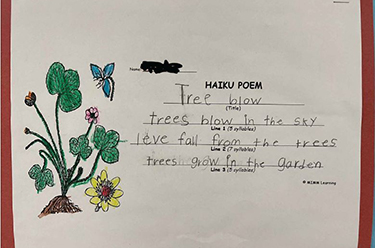 Name
HAIKU POEM
Tree blow
(Title)
trees blow in the sky
Line 1 (5 syllables)
leve fall from the trees
Line 2 (7 syllables)
trees grow in the garden
Line 3 (5 syllables)
Learning